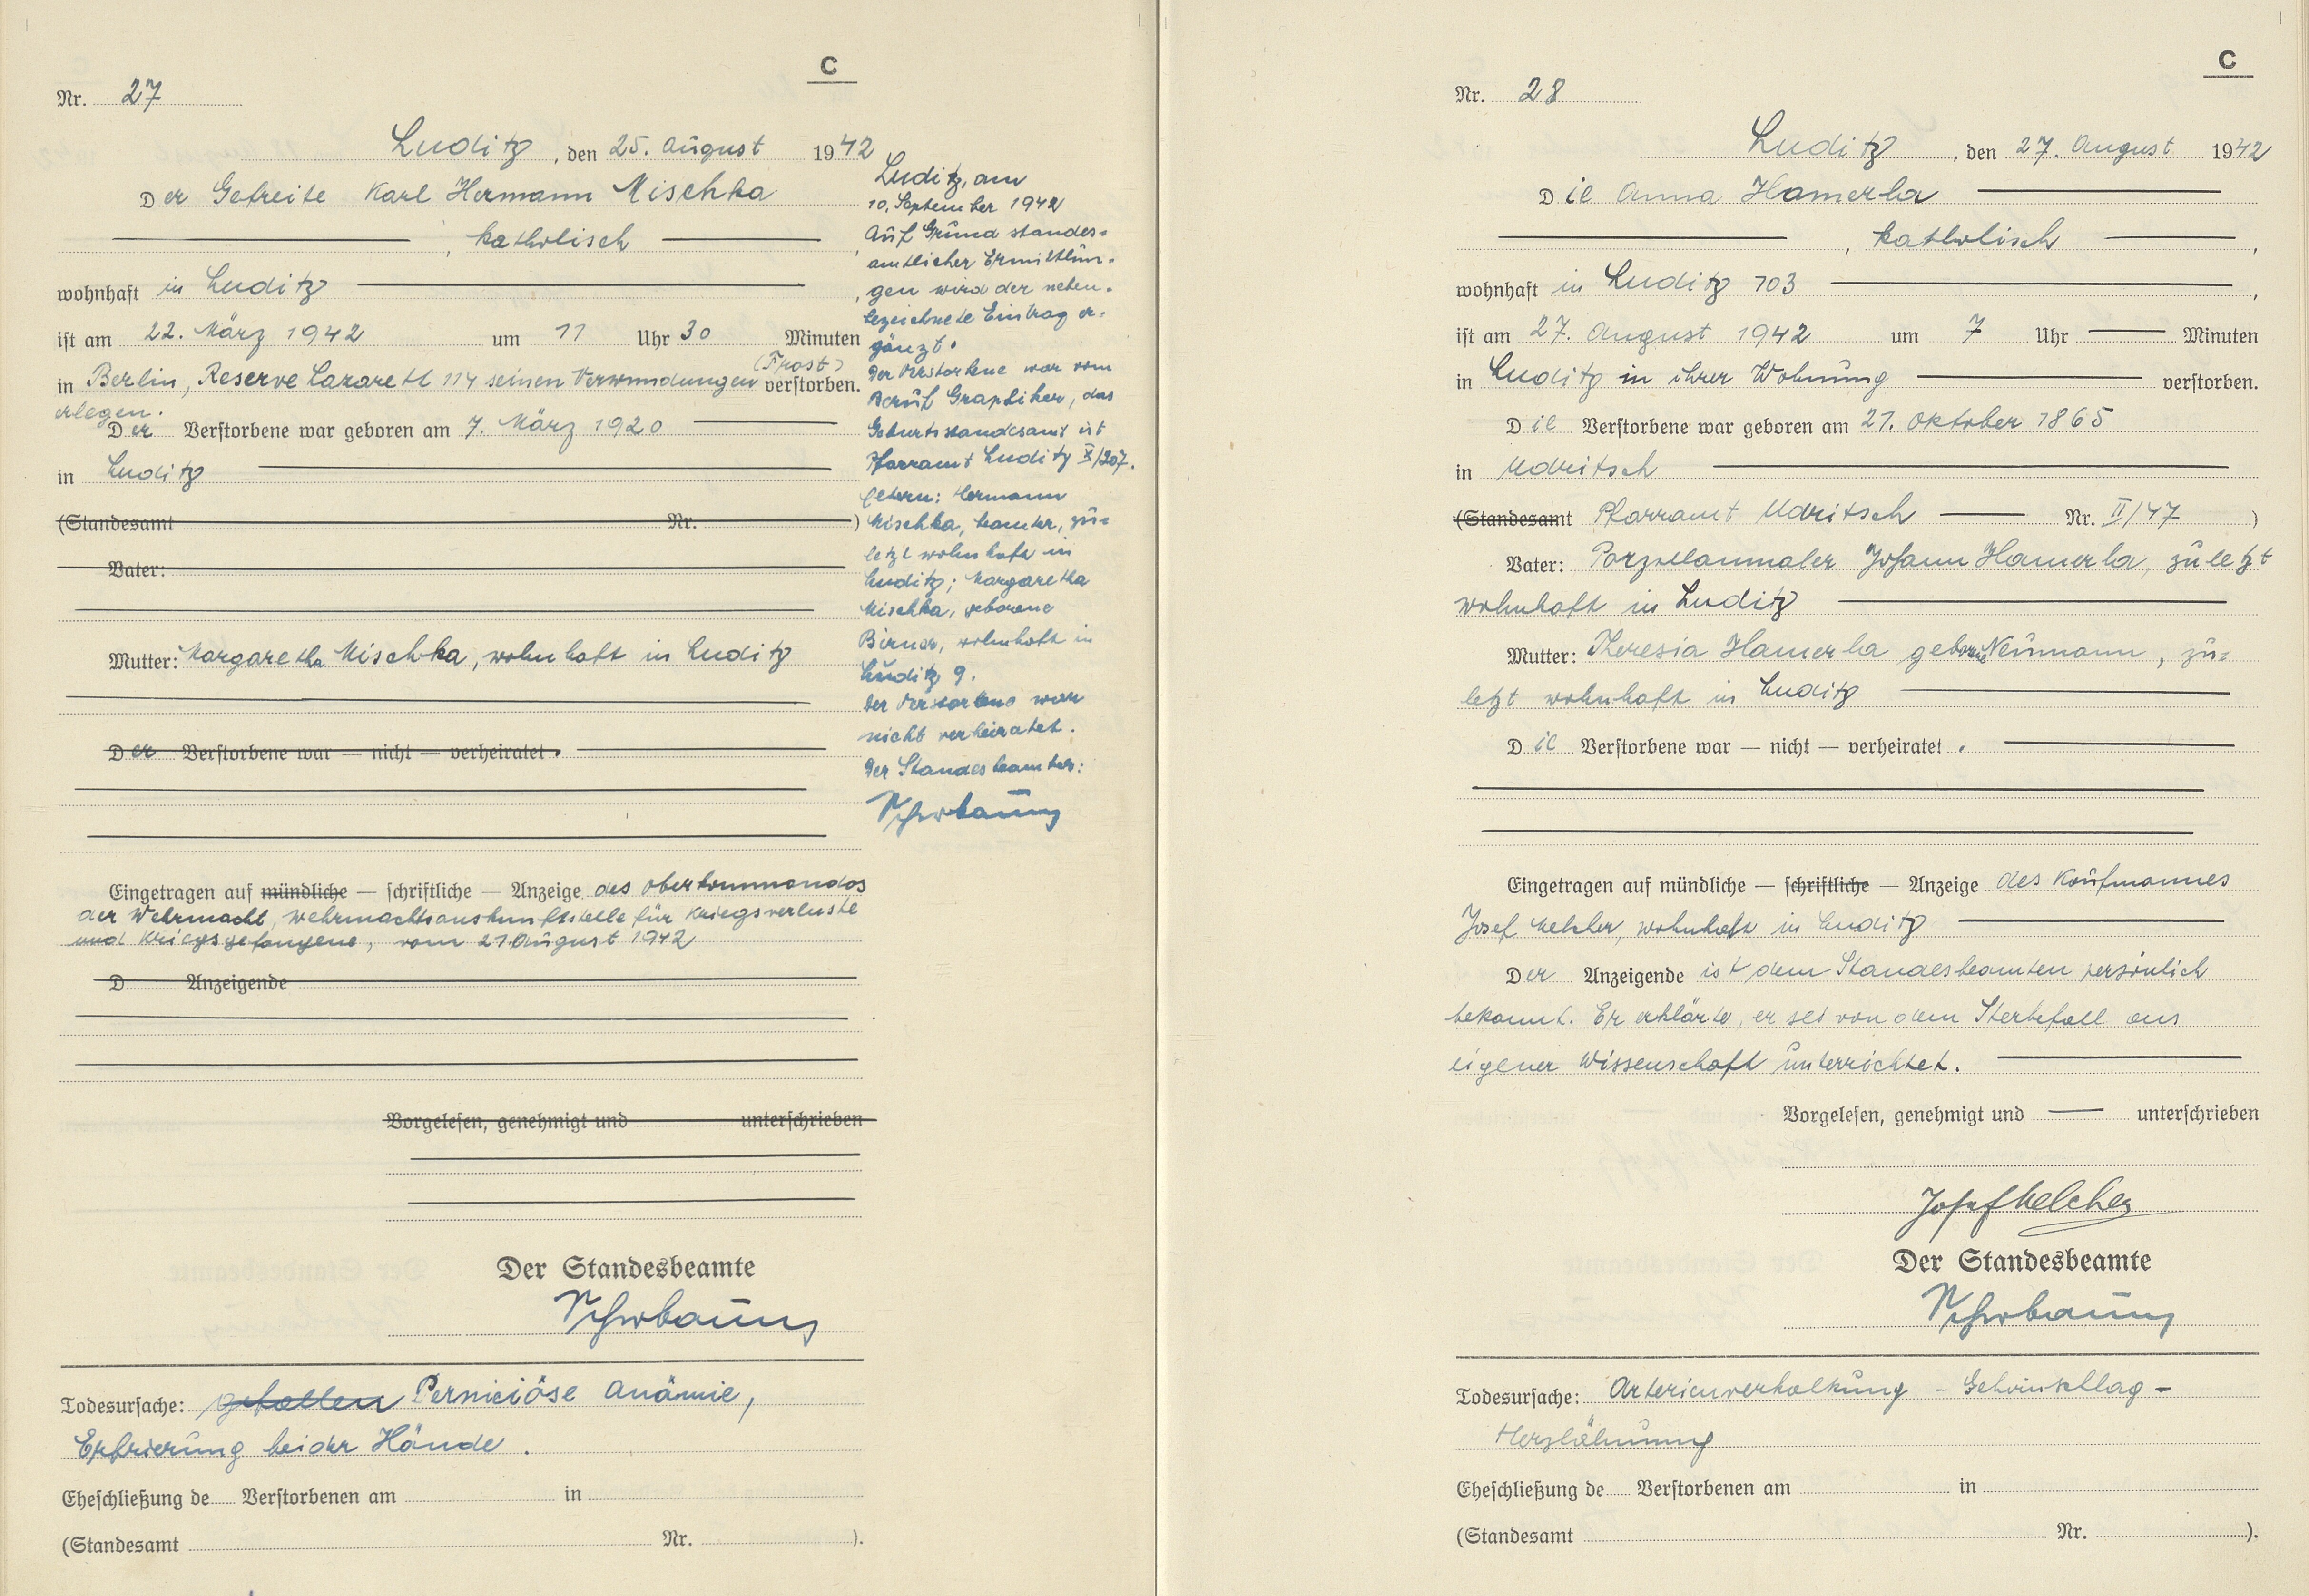 C
Nr. 27
Luditz, den 25. August 1942
Der Gefreite Karl Hermann Mischka
, katholisch
wohnhaft in Luditz
ist am 22. März 1942 um 11 Uhr 30 Minuten
(Frost)
in Berlin, Reserve Lazarett 114 seinen Verwundungen verstorben.
erlegen.
Der Verstorbene war geboren am 7. März 1920
in Luditz
(Standesamt Nr. )
Vater:
Mutter: Margaretha Mischka, wohnhaft in Luditz
Der Verstorbene war — nicht — verheiratet.
Eingetragen auf mündliche — schriftliche — Anzeige des Oberkommandos
der Wehrmacht, Wehrmachtsauskunftstelle für Kriegsverluste
und Kriegsgefangene, vom 21 August 1942
D Anzeigende
Vorgelesen, genehmigt und unterschrieben
Der Standesbeamte
Todesursache: gefallen Perniciöse Anämie,
Erfrierung beider Hände.
Eheschließung de Verstorbenen am in
(Standesamt Nr. ).
Luditz, am
10. September 1942
Auf Grund standes-
amtlicher Ermittlun-
gen wird der neben-
bezeichnete Eintrag er-
gänzt.
Der Verstorbene war vom
Beruf Graphiker, das
Geburtsstandesamt ist
Pfarramt Luditz X/207.
Eltern: Hermann
Mischka, Beamter, zu-
letzt wohnhaft in
Luditz; Margaretha
Mischka, geborene
wohnhaft in
Luditz 9.
Der Verstorbene war
nicht verheiratet.
Der Standesbeamte:
C
Nr. 28
Luditz, den 27. August 1942
Die Anna Hamerla
, katholisch ,
wohnhaft in Luditz 103 ,
ist am 27. August 1942 um 7 Uhr Minuten
in Luditz in ihrer Wohnung verstorben.
Die Verstorbene war geboren am 21. Oktober 1865
in Udritsch
(Standesamt Pfarramt Udritsch Nr. II/47 )
Vater: Porzellanmaler Johann Hamerla, zuletzt
wohnhaft in Luditz
Mutter: Theresia Hamerla geborene Neumann, zu-
letzt wohnhaft in Luditz
Die Verstorbene war — nicht — verheiratet.
Eingetragen auf mündliche — schriftliche — Anzeige des Kaufmannes
Josef Melcher, wohnhaft in Luditz
Der Anzeigende ist dem Standesbeamten persönlich
bekannt. Er erklärte, er sei von dem Sterbefall aus
eigener Wissenschaft unterrichtet.
Vorgelesen, genehmigt und unterschrieben
Josef Melcher
Der Standesbeamte
Todesursache: Arterienverkalkung - Gehirnschlag -
Herzlähmung
Eheschließung de Verstorbenen am in
(Standesamt Nr. ).